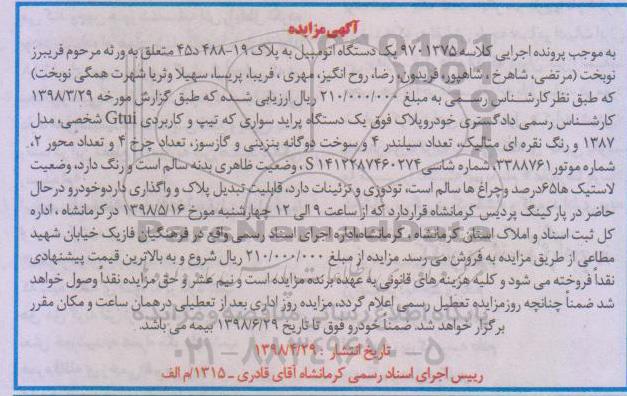 آگهی مزایده
به موجب پرونده اجرایی کلاسه ۹۷۰۱۲۷۵ یک دستگاه اتومبیل به پلاک ۱۹-۴۸۸د۴۵ متعلق به ورثه مرحوم فریبرز
نوبخت (مرتضی، شاهرخ ، شاهپور، فریدون، رضا، روح انگیز، مهری ، فریبا، پریسا، سهیلا وثریا شهرت همگی نوبخت)
که طبق نظر کارشناس رسمی به مبلغ ۲۱۰/۰۰۰/۰۰۰ ریال ارزیابی شده که طبق گزارش مورخه ۱۳۹۸/۳/۲۹
کارشناس رسمی دادگستری خودروپلاک فوق یک دستگاه پراید سواری که تیپ و کاربردی Gtui شخصی، مدل
۱۳۸۷ و رنگ نقره ای متالیک، تعداد سیلندر ۴ و سوخت دوگانه بنزینی و گازسوز، تعداد چرخ ۴ و تعداد محور ۲،
شماره موتور ۲۳۸۸۷۶۱، شماره شاسی S۱۴۱۲۲۸۷۴۶۰۲۷۴ ، وضعیت ظاهری بدنه سالم است و رنگ دارد، وضعیت
لاستیک ها۶۵درصد وچراغ ها سالم است، تودوزی و تزئینات دارد، قابلیت تبدیل پلاک و واگذاری داردوخودرو درحال
حاضر در پارکینگ پردیس کرمانشاه قراردارد که از ساعت ۹ الی ۱۲ چهارشنبه مورخ ۱۳۹۸/۵/۱۶ در کرمانشاه ، اداره
کل ثبت اسناد و املاک استان کرمانشاه ، کرمانشاه اداره اجرای اسناد رسمی واقع در فرهنگیان فازیک خیابان شهید
مطاعی از طریق مزایده به فروش می رسد. مزایده از مبلغ ۲۱۰/۰۰۰/۰۰۰ ریال شروع و به بالاترین قیمت پیشنهادی
نقداً فروخته می شود و کلیه هزینه های قانونی به عهده برنده مزایده است و نیم عشر و حق مزایده نقداً وصول خواهد
شد ضمناً چنانچه روزمزایده تعطیل رسمی اعلام گردد، مزایده روز اداری بعد از تعطیلی در همان ساعت و مکان مقرر
برگزار خواهد شد. ضمناً خودرو فوق تا تاریخ ۱۳۹۸/۶/۲۹ بیمه می باشد.
تاریخ انتشار : ۱۳۹۸/۴/۲۹
رییس اجرای اسناد رسمی کرمانشاه آقای قادری ـ ۱۳۱۵/م الف
ParsNamadData
۰۲۱-۸۸۳۴۹۶۷۰-۵